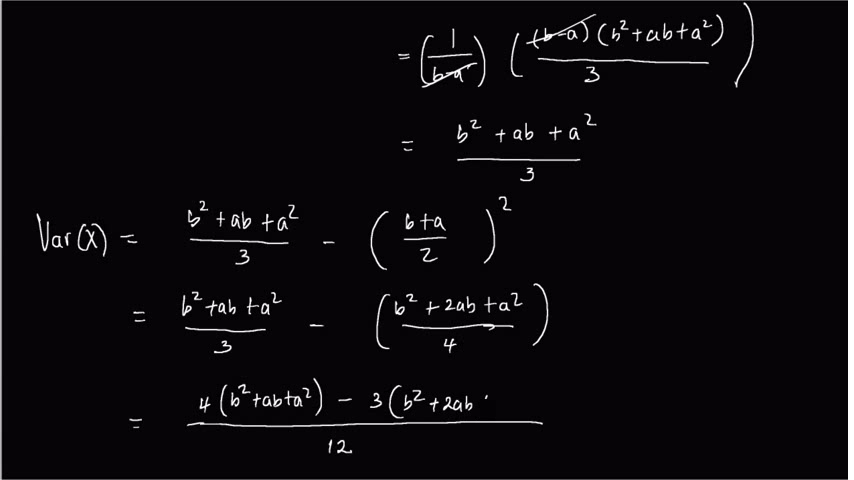 = (1/(b-a)) ((b-a)(b²+ab+a²)/3)
= (b² + ab + a²)/3
Var(X) = (b²+ab+a²)/3 - ((b+a)/2)²
= (b²+ab+a²)/3 - ((b²+2ab+a²)/4)
= (4(b²+ab+a²) - 3(b²+2ab)/12